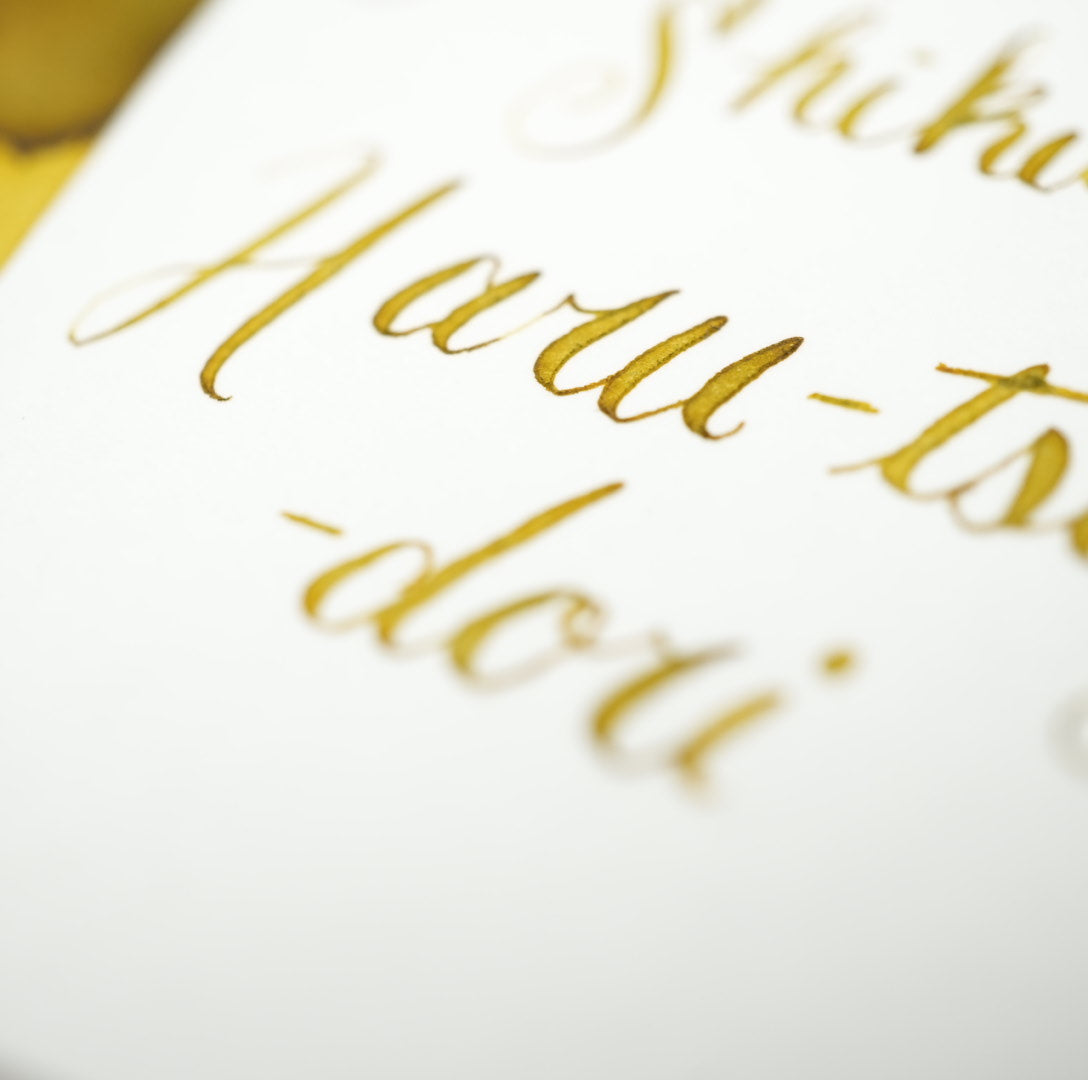 Shiki
Haru-ts
-dori